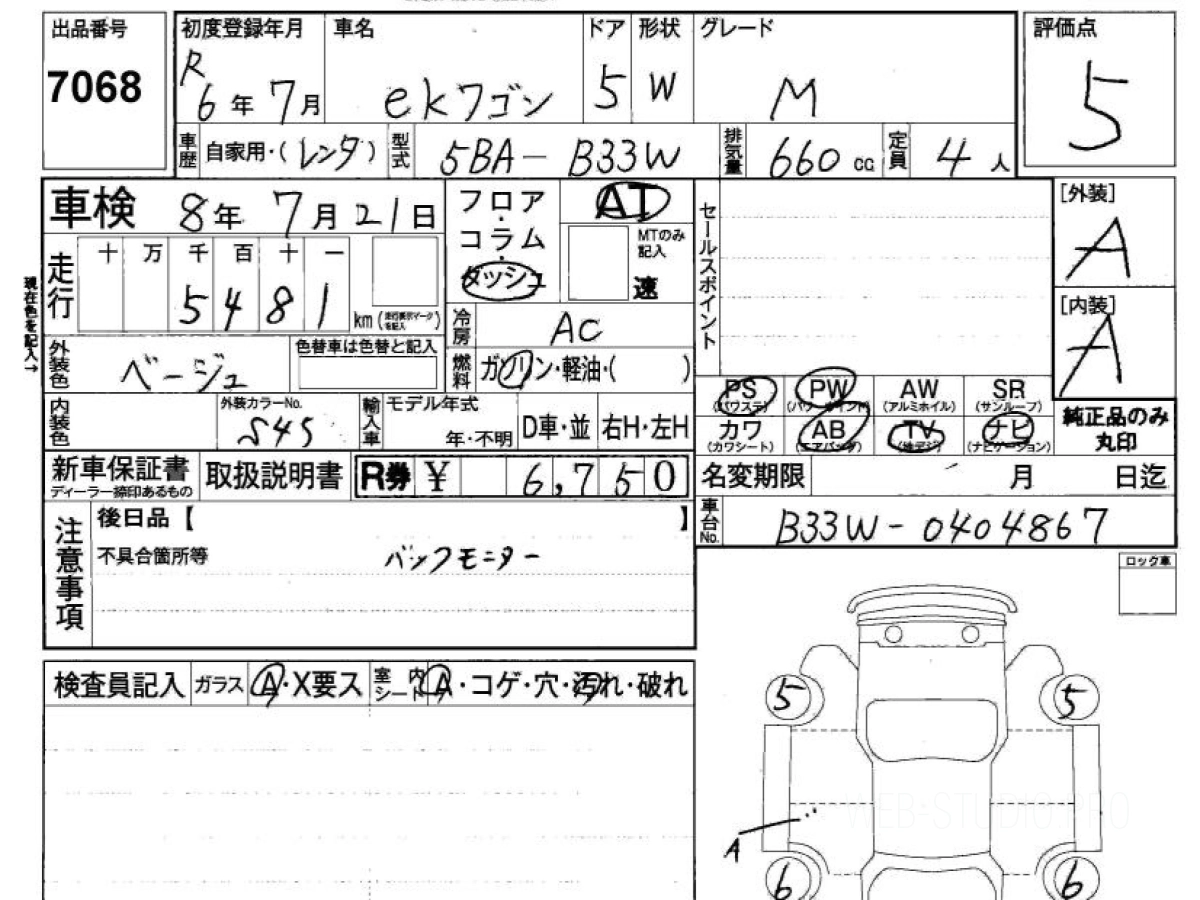 出品番号 初度登録年月 車名 ドア 形状 グレード 評価点
7068 R6年7月 ekワゴン 5 W M 5
車歴 自家用・(レンタ) 型式 5BA-B33W 排気量 660cc 定員 4人
車検 8年7月21日 フロア・コラム・ダッシュ AT セールスポイント [外装]
MTのみ記入 速 A
走行 十 万 千 百 十 一
5 4 8 1 km (走行表示マークを記入) [内装]
現在色を記入→ 冷房 AC A
外装色 ベージュ 色替車は色替と記入 燃料 ガソリン・軽油・( )
PS PW AW SR
(パワステ) (パワーウインド) (アルミホイル) (サンルーフ)
内装色 外装カラーNo. S45 輸入車 モデル年式 年・不明 D車・並 右H・左H 純正品のみ丸印
カワ AB TV ナビ
(カワシート) (エアバッグ) (地デジ) (ナビゲーション)
新車保証書 取扱説明書 R券 ¥ 6,750 名変期限 月 日迄
ディーラー捺印あるもの
注意事項 後日品【 】 車台No. B33W-0404867
不具合箇所等 バックモニター
ロック車
検査員記入 ガラス A・X要ス 室内シート A・コゲ・穴・汚れ・破れ
5 5
WEB-STUDIO.PRO
A
6 6